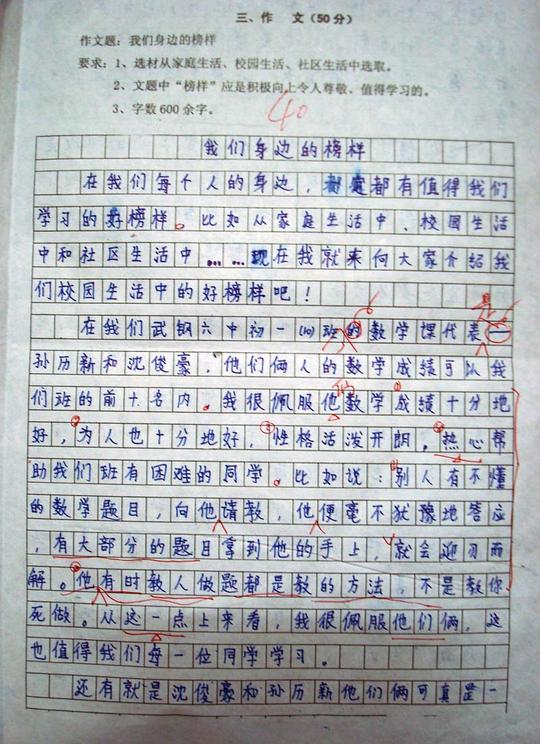 三、作 文(50分)
作文题：我们身边的榜样
要求：1、选材从家庭生活、校园生活、社区生活中选取。
2、文题中“榜样”应是积极向上令人尊敬、值得学习的。
3、字数600余字。
40
我们身边的榜样
在我们每个人的身边，都有值得我们
学习的好榜样。比如从家庭生活中、校园生活
中和社区生活中……现在我就来向大家介绍我
们校园生活中的好榜样吧！
是
在我们武钢六中初一(10)班的数学课代表一
孙历新和沈俊豪，他们俩人的数学成绩可以我
们
们班的前十名内。我很佩服他数学成绩十分地
好，为人也十分地好，性格活泼开朗，热心帮
助我们班有困难的同学。比如说：别人有不懂
的数学题目，向他请教，他便毫不犹豫地答应
，有大部分的题目拿到他的手上，就会迎刃而
解。他有时教人做题都是教的方法，不是教你
死做。从这一点上来看，我很佩服他们俩，这
也值得我们每一位同学学习。
还有就是沈俊豪和孙历新他们俩可真是一